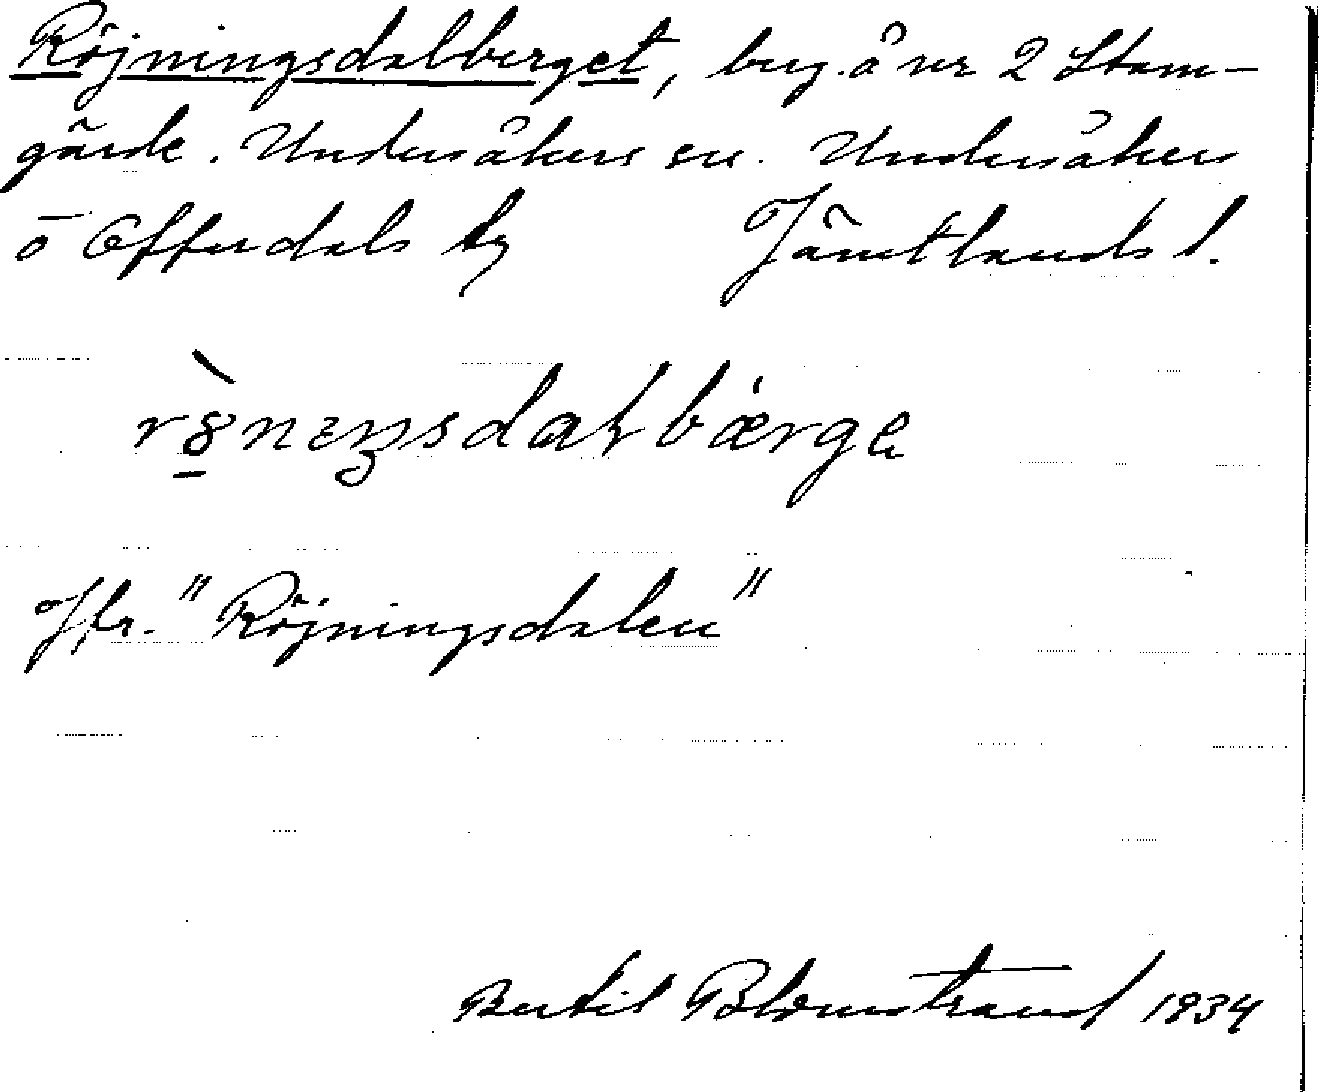 Röjningsdalberget, beg. å nr 2 Stam-
gärde. Undersåkers sn. Undersåkers
o Offerdals tg Jämtlands l.
Jfr. "Röjningsdalen"
Bertil Blomstrand 1934